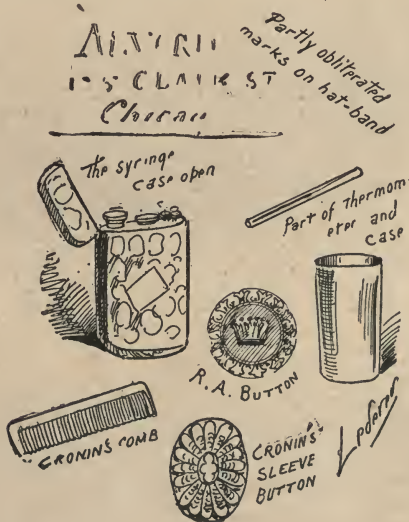 CLARK ST
Partly obliterated
marks on hat-band
The syringe
case open
Part of thermom-
eter and
case
R.A. BUTTON
CRONIN'S COMB
CRONIN'S
SLEEVE
BUTTON
Lederer